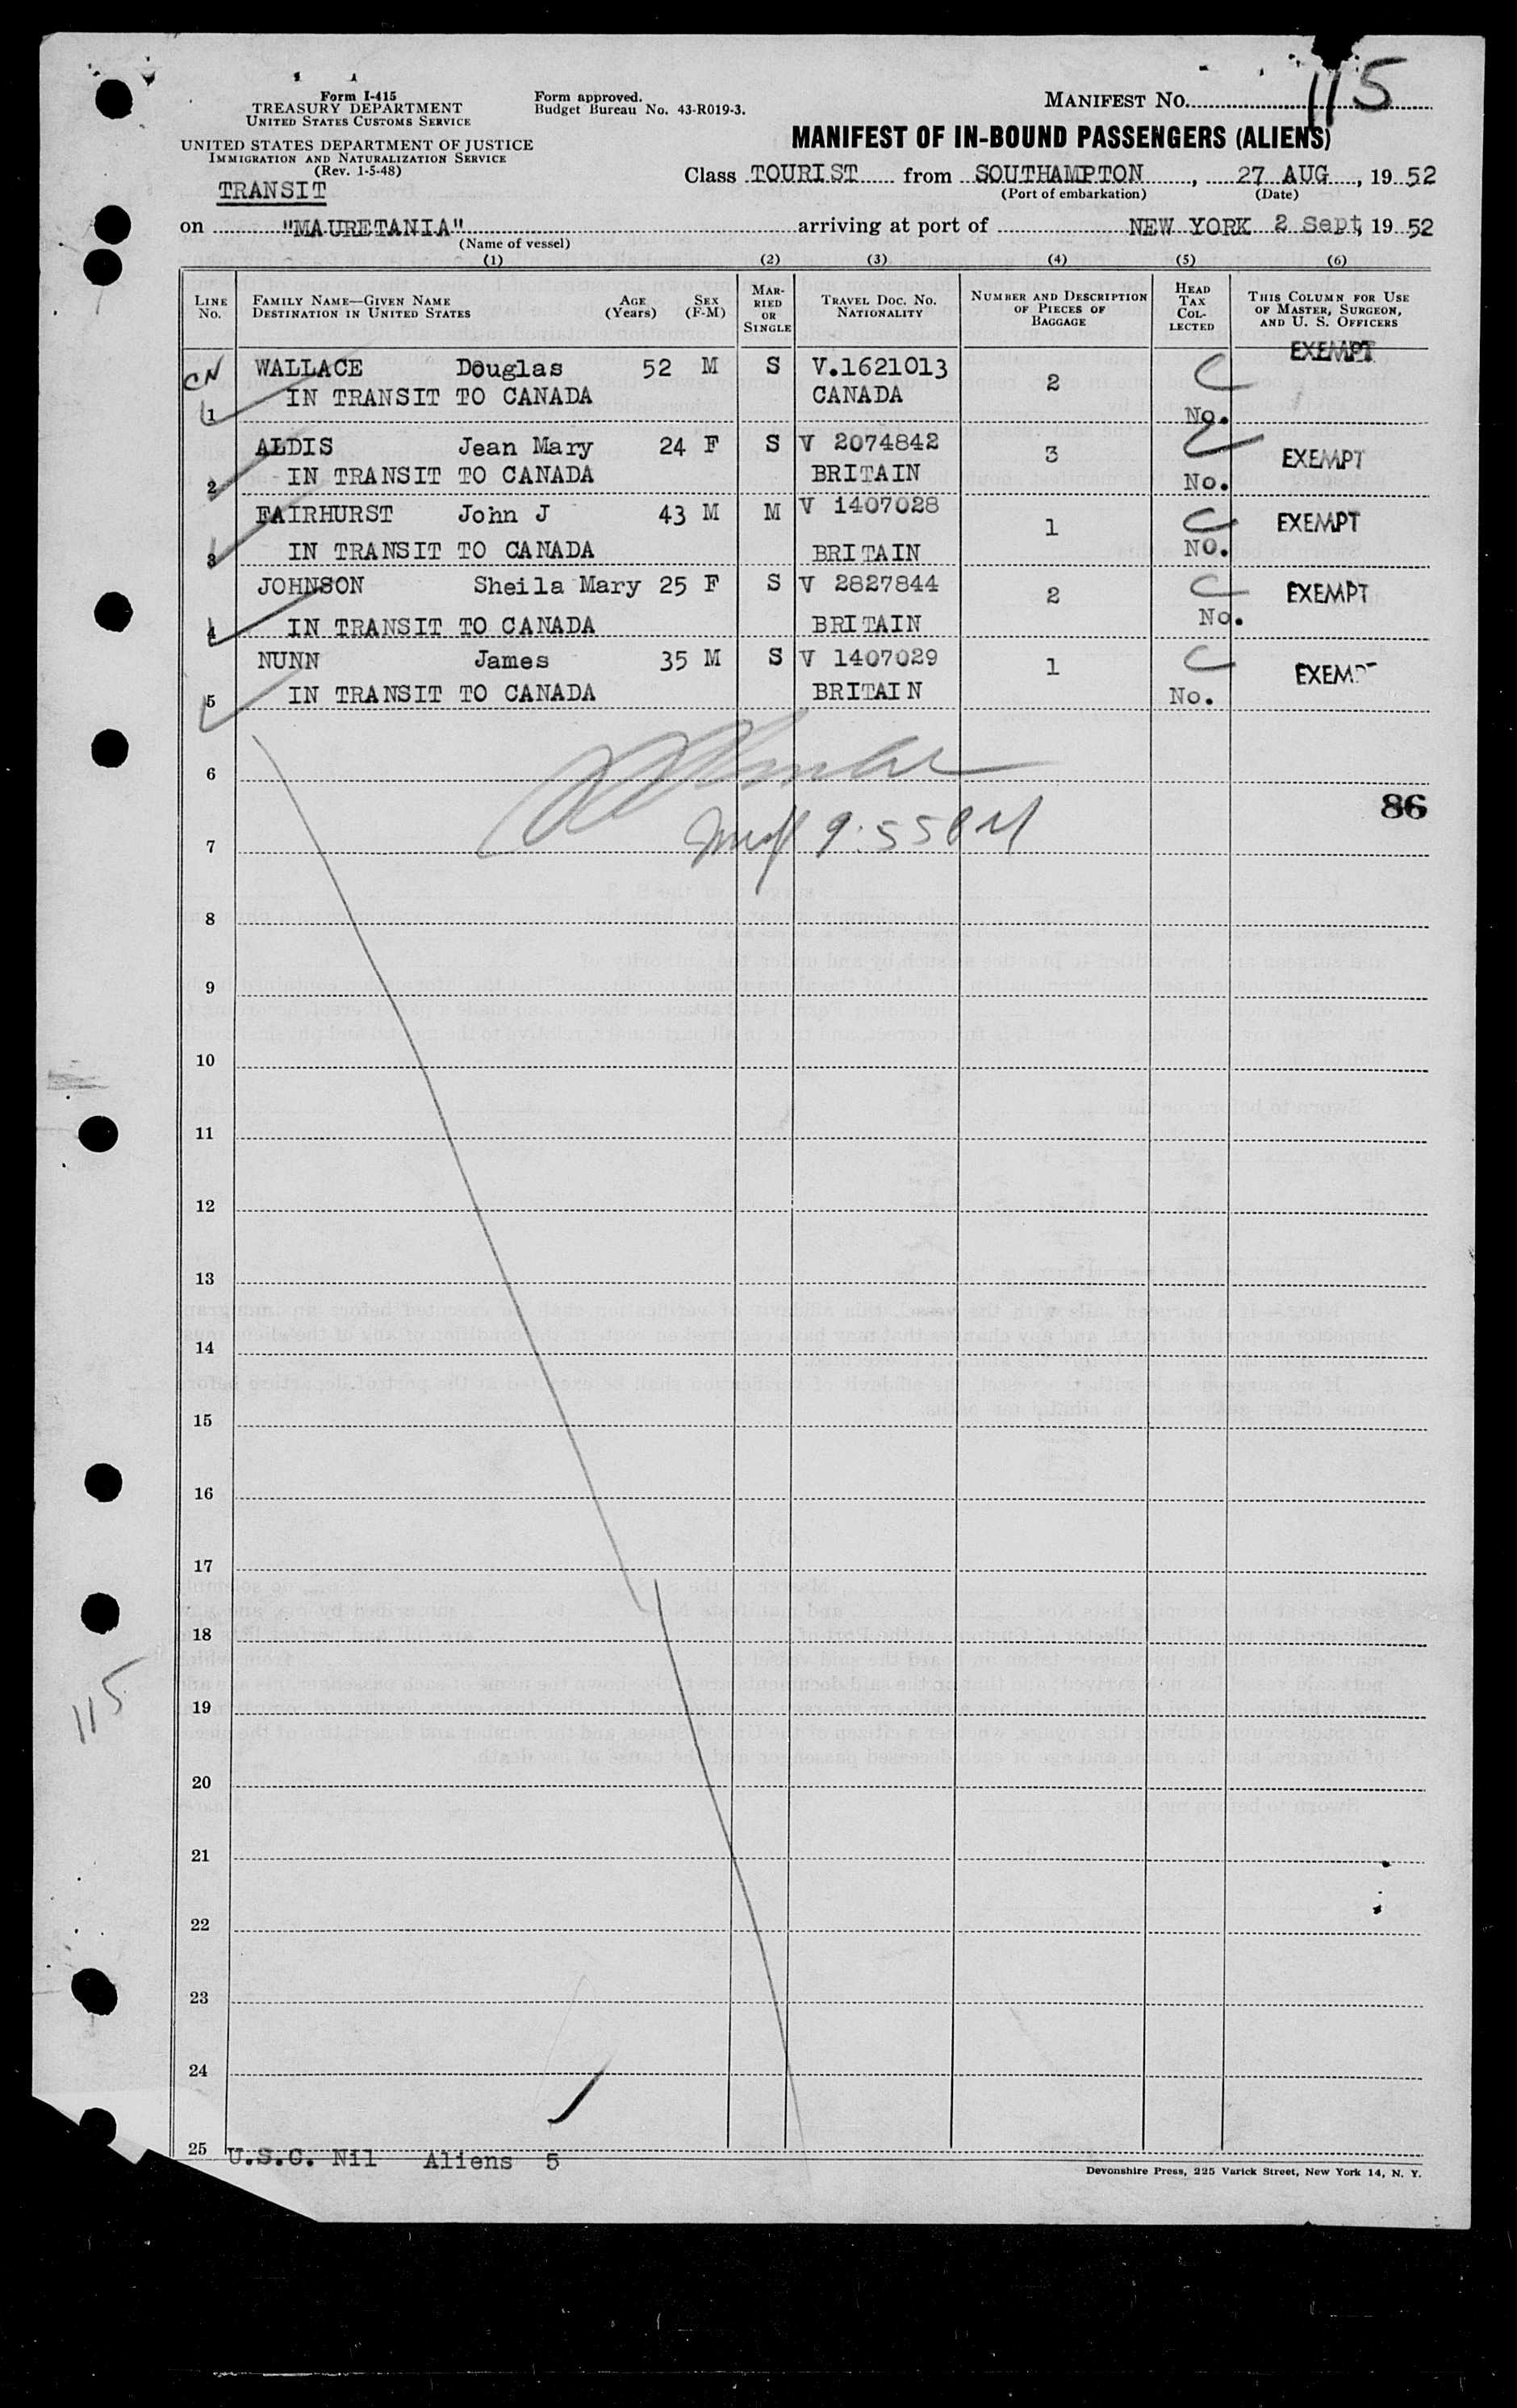 Form I-415
TREASURY DEPARTMENT
UNITED STATES CUSTOMS SERVICE
UNITED STATES DEPARTMENT OF JUSTICE
IMMIGRATION AND NATURALIZATION SERVICE
(Rev. 1-5-48)
TRANSIT
Form approved.
Budget Bureau No. 43-R019-3.
MANIFEST No. 115
MANIFEST OF IN-BOUND PASSENGERS (ALIENS)
Class TOURIST from SOUTHAMPTON, 27 AUG, 19 52
(Port of embarkation) (Date)
on "MAURETANIA" arriving at port of NEW YORK 2 Sept, 19 52
(Name of vessel)
(1) (2) (3) (4) (5) (6)
LINE No. FAMILY NAME—GIVEN NAME DESTINATION IN UNITED STATES AGE (Years) SEX (F-M) MARRIED OR SINGLE TRAVEL DOC. No. NATIONALITY NUMBER AND DESCRIPTION OF PIECES OF BAGGAGE HEAD TAX COLLECTED THIS COLUMN FOR USE OF MASTER, SURGEON, AND U. S. OFFICERS
CN WALLACE Douglas 52 M S V.1621013 2 C EXEMPT
1 IN TRANSIT TO CANADA CANADA No.
ALDIS Jean Mary 24 F S V 2074842 3 C EXEMPT
2 IN TRANSIT TO CANADA BRITAIN No.
FAIRHURST John J 43 M M V 1407028 1 C EXEMPT
3 IN TRANSIT TO CANADA BRITAIN NO.
JOHNSON Sheila Mary 25 F S V 2827844 2 C EXEMPT
4 IN TRANSIT TO CANADA BRITAIN No.
NUNN James 35 M S V 1407029 1 C EXEMPT
5 IN TRANSIT TO CANADA BRITAIN No.
6
86
7 9:55 PM
8
9
10
11
12
13
14
15
16
17
18
115
19
20
21
22
23
24
25 U.S.C. Nil Aliens 5
Devonshire Press, 225 Varick Street, New York 14, N. Y.